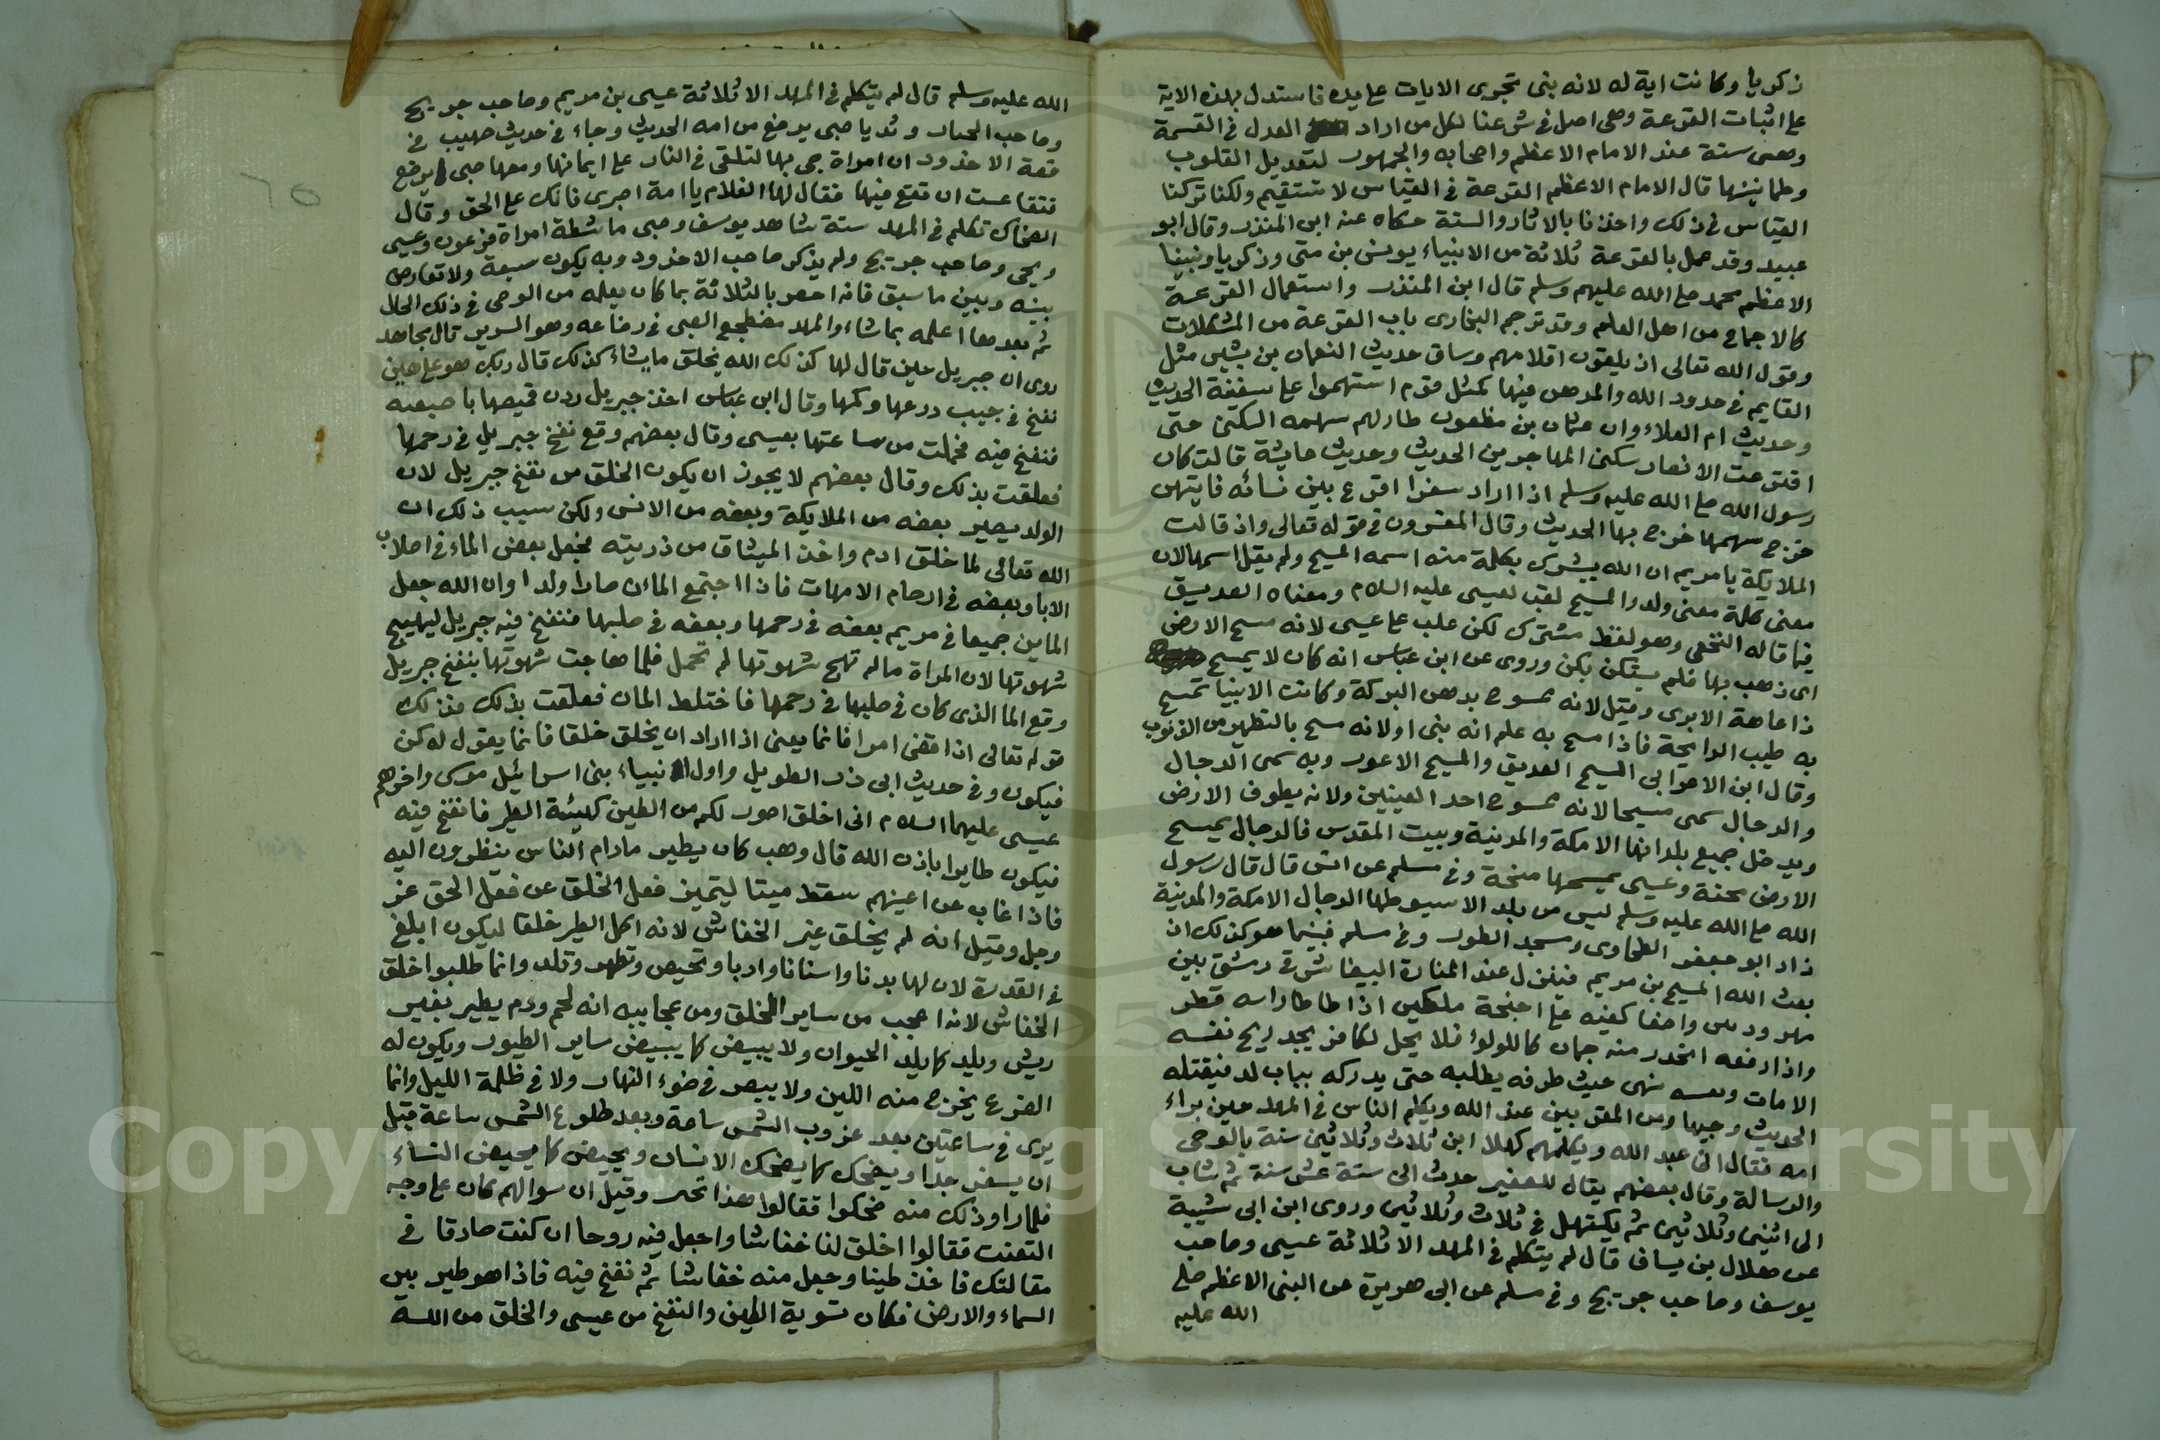 زكريا وكانت اية له لانه نبى تجرى الايات على يده فاستدل بهذه الاية
على اثبات القرعة وهى اصل فى شرعنا لكل من اراد العدل فى القسمة
وهى سنة عند الامام الاعظم واصحابه والجمهور لتعديل القلوب
وطمانينتها قال الامام الاعظم القرعة فى القياس لا تستقيم ولكنا تركنا
القياس فى ذلك واخذنا بالاثار والسنة حكاه عنه ابن المنذر وقال ابو
عبيد وقد عمل بالقرعة ثلاثة من الانبياء يونس بن متى وزكريا ونبينا
الاعظم محمد صلى الله عليهم وسلم قال ابن المنذر واستعمال القرعة
كالاجماع من اهل العلم وقد ترجم البخارى باب القرعة من المشكلات
وقول الله تعالى اذ يلقون اقلامهم وساق حديث النعمان بن بشير مثل
القايم فى حدود الله والمدهن فيها كمثل قوم استهموا على سفينة الحديث
وحديث ام العلاء وان عثمان بن مظعون طار لهم سهمه السكنى حتى
اقترعت الانصار سكنى المهاجرين الحديث وحديث عايشة قالت كان
رسول الله صلى الله عليه وسلم اذا اراد سفرا اقرع بين نسائه فايتهن
خرج سهمها خرج بها الحديث وقال المفسرون فى قوله تعالى واذ قالت
الملايكة يا مريم ان الله يبشرك بكلمة منه اسمه المسيح ولم يقل اسمها لان
معنى كلمة معنى ولد والمسيح لقب لعيسى عليه السلام ومعناه الصديق
فيما قاله النخعى وهو لفظ مشترك لكن غلب على عيسى لانه مسح الارض
اى ذهب بها فلم يستكن بكن وروى عن ابن عباس انه كان لا يمسح
ذا عاهة الا برى وقيل لانه ممسوح بدهن البركة وكانت الانبيا تمسح
به طيب الرايحة فاذا مسح به علم انه نبى او لانه مسح بالتطهير من الذنوب
وقال ابن الاعرابى المسيح الصديق والمسيح الاعور وبه سمى الدجال
والدجال سمى مسيحا لانه ممسوح احد العينين ولانه يطوف الارض
ويدخل جميع بلدانها الا مكة والمدينة وبيت المقدس فالدجال يمسح
الارض محنة وعيسى يمسحها منحة وفى مسلم عن انس قال قال رسول
الله صلى الله عليه وسلم ليس من بلد الا سيوطها الدجال الا مكة والمدينة
زاد ابو جعفر الطحاوى ومسجد الطور وفى مسلم فبينما هو كذلك اذ
بعث الله المسيح بن مريم فينزل عند المنارة البيضا شرقى دمشق بين
مهرودتين واضعا كفيه على اجنحة ملكين اذا طاطا راسه قطر
واذا رفعه انحدر منه جمان كاللولؤ فلا يحل لكافر يجد ريح نفسه
الا مات ونفسه ينتهى حيث طرفه يطلبه حتى يدركه بباب لد فيقتله
الحديث وجيها ومن المقربين عند الله ويكلم الناس فى المهد حين براء
امه فقال انى عبد الله ويكلمهم كهلا ابن ثلاث وثلاثين سنة بالوحى
والرسالة وقال بعضهم يقال للصغير حدث الى ستة عشر سنة ثم شاب
الى اثنين وثلاثين ثم يكتهل فى ثلاث وثلاثين وروى ابن ابى شيبة
عن هلال بن يساف قال لم يتكلم فى المهد الا ثلاثة عيسى وصاحب
يوسف وصاحب جريج وفى مسلم عن ابى هريرة عن النبى الاعظم صلى
الله عليه
الله عليه وسلم قال لم يتكلم فى المهد الا ثلاثة عيسى بن مريم وصاحب جريج
وصاحب الجبار وثديا صبى يرضع من امه الحديث وجاء فى حديث صهيب فى
قصة الاخدود ان امراة جى بها لتلقى فى النار على ايمانها ومعها صبى يرضع
فتقاعست ان تقع فيها فقال لها الغلام يا امة اصبرى فانك على الحق وقال
الضحاك تكلم فى المهد ستة شاهد يوسف وصبى ماشطة امراة فرعون وعيسى
ويحى وصاحب جريج ولم يذكر صاحب الاخدود وبه يكون سبعة ولا تعارض
بينه وبين ما سبق فانه احصر بالثلاثة بما كان يعلمه من الوحى فى ذلك الحال
ثم بعدها اعلمه بما شاء والمهد مضطجع الصبى فى رضاعه وهو السرير قال مجاهد
روى ان جبريل حين قال لها كذلك الله يخلق ما يشاء كذلك قال ربك هو على هين
نفخ فى جيب درعها وكمها وقال ابن عباس اخذ جبريل ردن قميصها باصبعه
فنفخ فيه فحملت من ساعتها بعيسى وقال بعضهم وقع نفخ جبريل فى رحمها
فعلقت بذلك وقال بعضهم لا يجوز ان يكون الخلق من نفخ جبريل لان
الولد يصير بعضه من الملايكة وبعضه من الانس ولكن سبب ذلك ان
الله تعالى لما خلق ادم واخذ الميثاق من ذريته فجعل بعض الماء فى اصلاب
الابا وبعضه فى ارحام الامهات فاذا اجتمع الماان صارا ولدا وان الله جعل
الماين جميعا فى مريم بعضه فى رحمها وبعضه فى صلبها فنفخ فيه جبريل ليهيج
شهوتها لان المراة ما لم تهج شهوتها لم تحمل فلما هاجت شهوتها بنفخ جبريل
وقع الما الذى كان فى صلبها فى رحمها فاختلط المان فعلقت بذلك فذلك
قوله تعالى اذا قضى امرا فانما يعنى اذا اراد ان يخلق خلقا فانما يقول له كن
فيكون وفى حديث ابى ذر الطويل واول انبياء بنى اسرائيل موسى واخرهم
عيسى عليهما السلام انى اخلق اصور لكم من الطين كهيئة الطير فانفخ فيه
فيكون طايرا باذن الله قال وهب كان يطير مادام الناس ينظرون اليه
فاذا غاب عن اعينهم سقط ميتا ليتميز فعل الخلق عن فعل الحق عز
وجل وقيل انه لم يخلق غير الخفاش لانه اكمل الطير خلقا ليكون ابلغ
فى القدرة لان لها بدنا واسنانا وادبا وتحيض وتطهر وتلد وانما طلبوا خلق
الخفاش لانه اعجب من ساير الخلق ومن عجايبه انه لحم ودم يطير بغير
ريش ويلد كما يلد الحيوان ولا يبيض كما يبيض ساير الطيور ويكون له
الضرع يخرج منه اللبن ولا يبصر فى ضوء النهار ولا فى ظلمة الليل وانما
يرى فى ساعتين بعد غروب الشمس ساعة وبعد طلوع الشمس ساعة قبل
ان يسفر جدا ويضحك كما يضحك الانسان ويحيض كما يحيض النساء
فلما راو ذلك منه ضحكوا فقالوا هذا سحر وقيل ان سوالهم كان على وجه
التعنت فقالوا اخلق لنا خفاشا واجعل فيه روحا ان كنت صادقا فى
مقالتك فاخذ طينا وجعل منه خفاشا ثم نفخ فيه فاذا هو طير بين
السماء والارض فكان تسوية الطين والنفخ من عيسى والخلق من الله
٦٥
Copyright © King Saud University